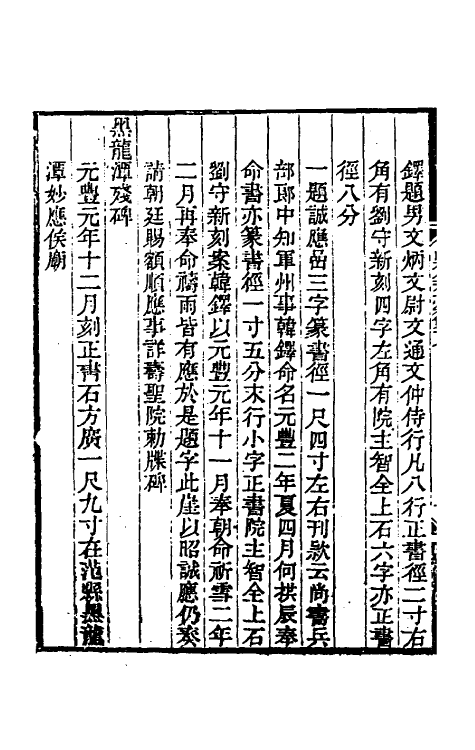 鐸題男文炳文尉文通文仲侍行凡八行正書徑二寸右
角有劉守新刻四字左角有院主智全上石六字亦正書
徑八分
一題誠應嵒三字篆書徑一尺四寸左右刊款云尚書兵
部郎中知軍州事韓鐸命名元豐二年夏四月何拱辰奉
命書亦篆書徑一寸五分末行小字正書院主智全上石
劉守新刻案韓鐸以元豐元年十一月奉朝命祈雪二年
二月再奉命禱雨皆有應於是題字此崖以昭誠應仍奏
請朝廷賜額順應事詳壽聖院勅牒碑
黑龍潭殘碑
元豐元年十二月刻正書石方廣一尺九寸在范縣黑龍
潭妙應侯廟